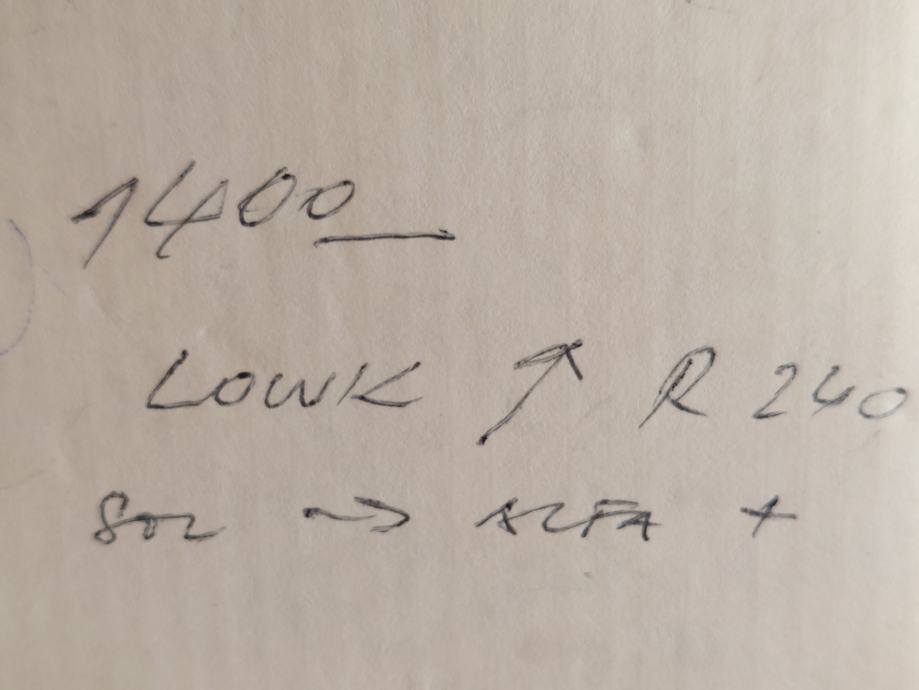 1400
LOWK ↑ R 240
SOL → ALFA +